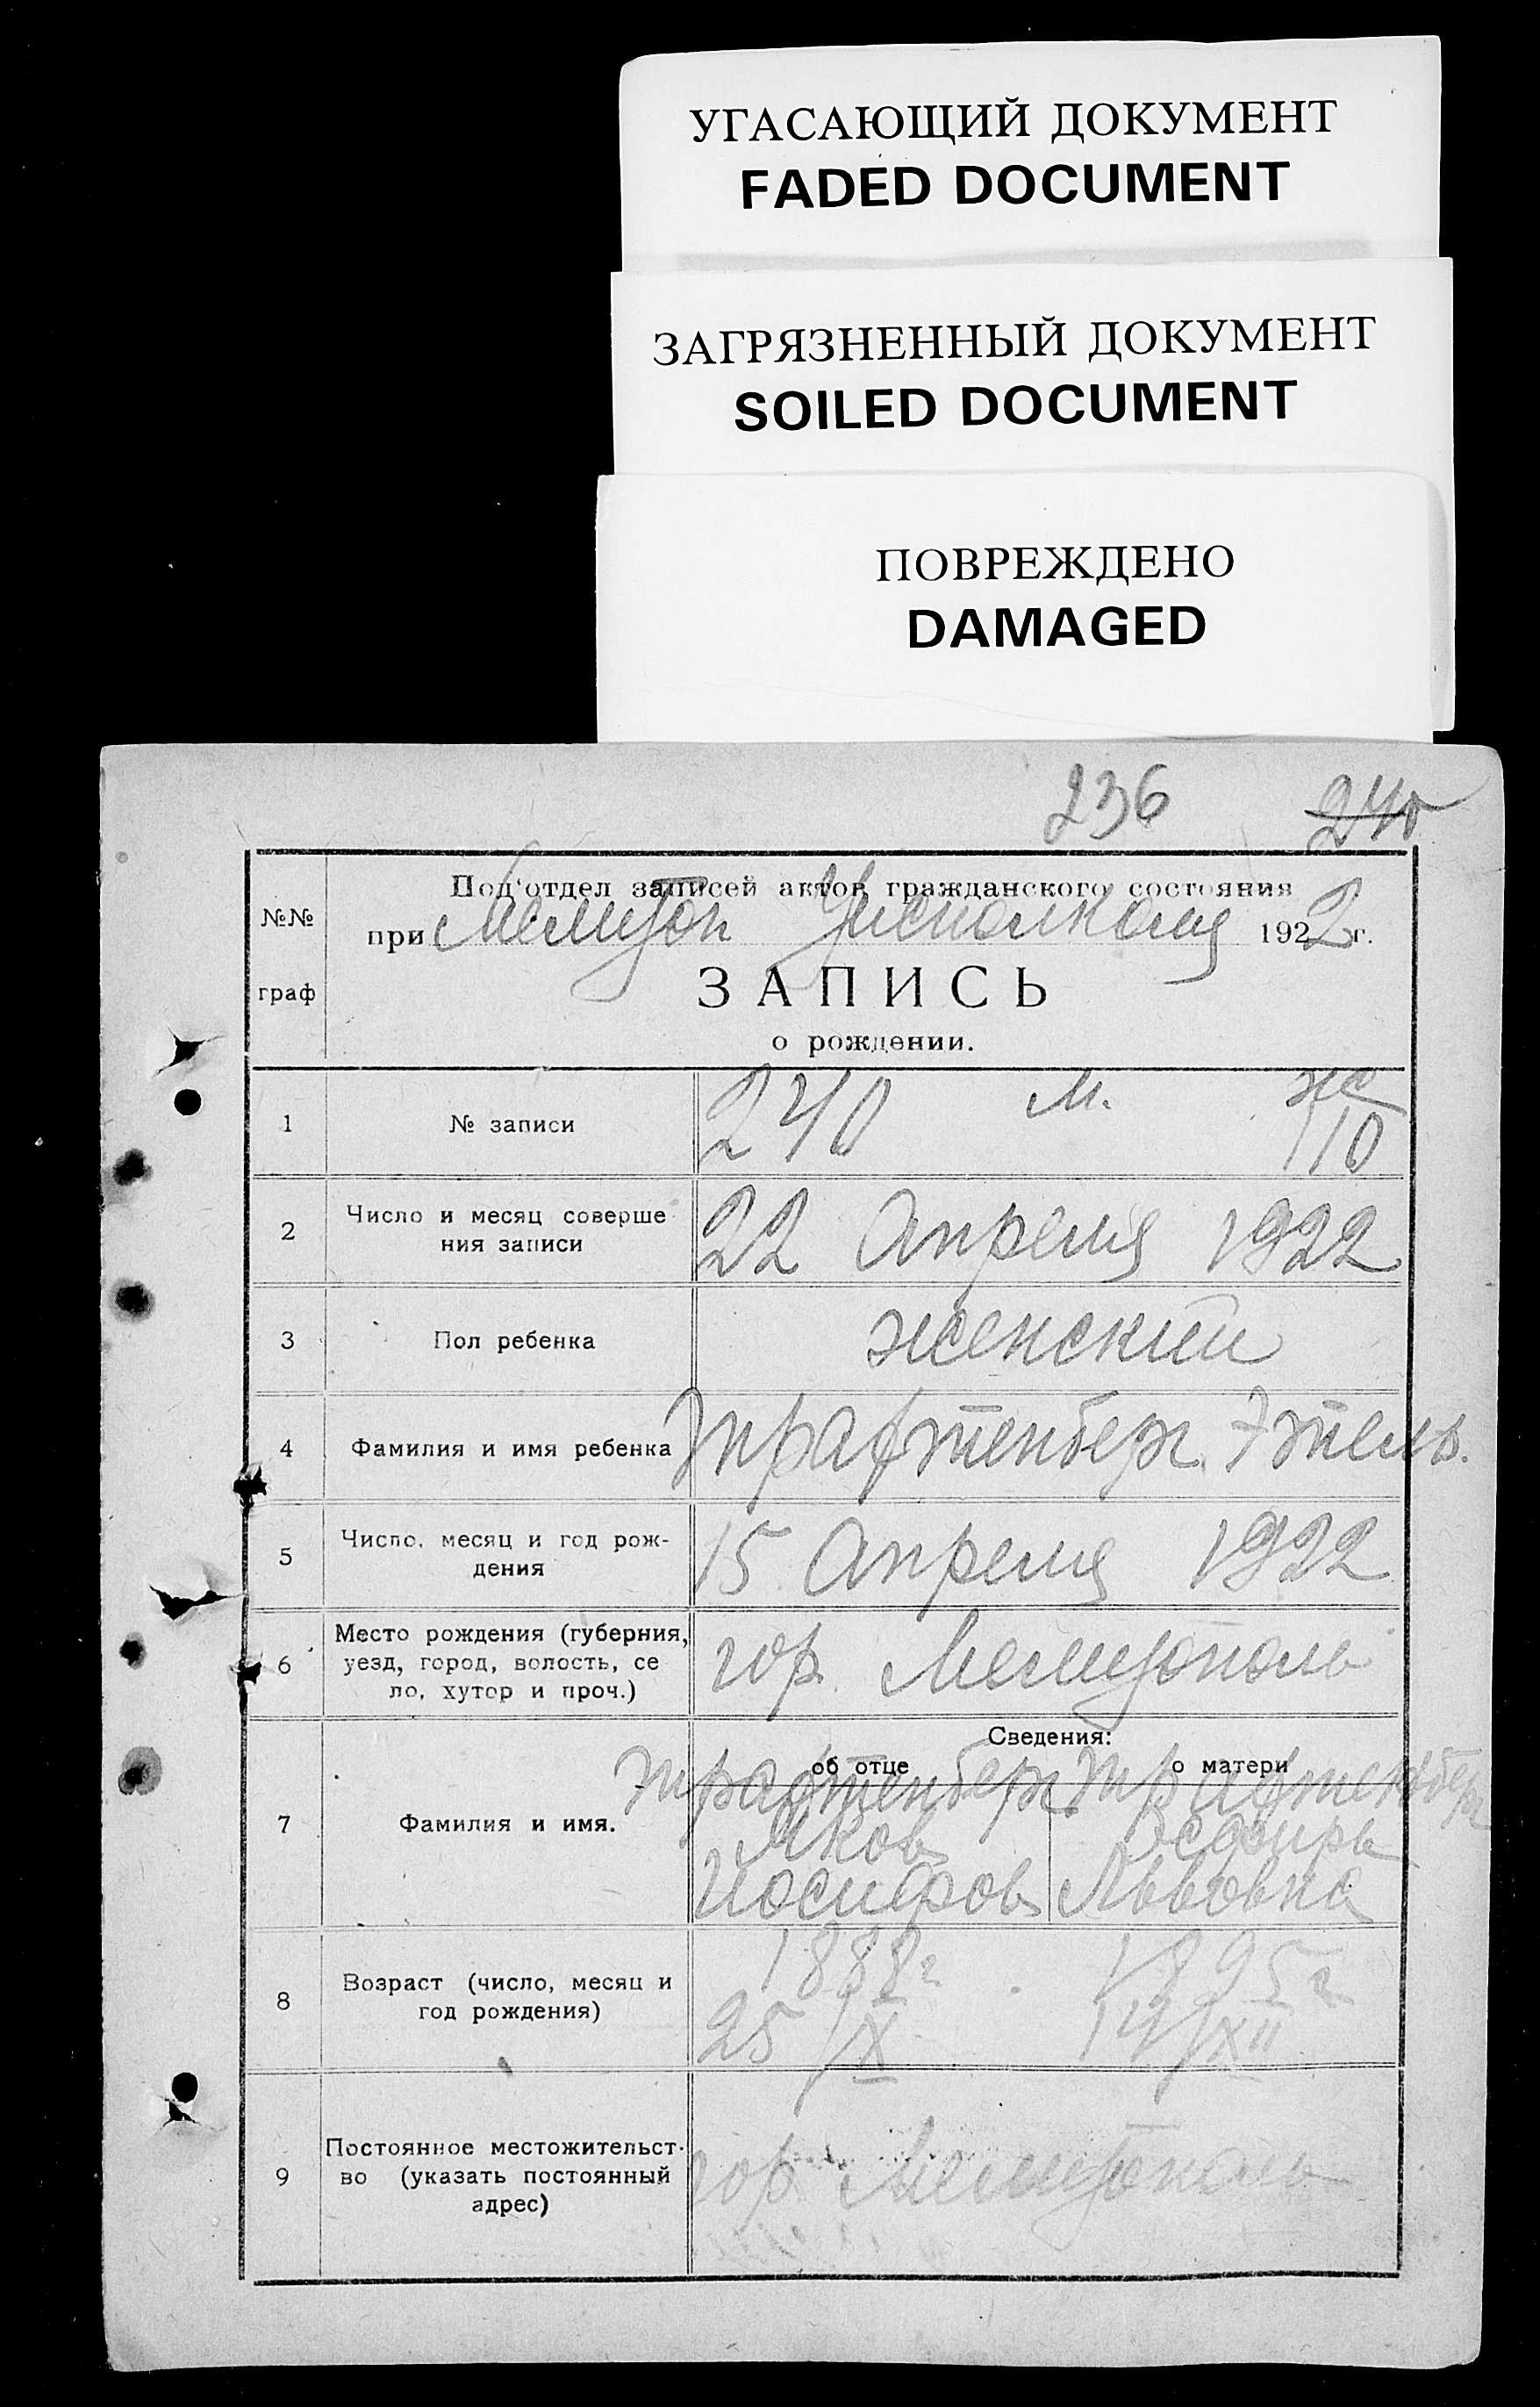 УГАСАЮЩИЙ ДОКУМЕНТ
FADED DOCUMENT
ЗАГРЯЗНЕННЫЙ ДОКУМЕНТ
SOILED DOCUMENT
ПОВРЕЖДЕНО
DAMAGED
236 240
Под'отдел записей актов гражданского состояния
№№
при Мелитоп Исполкома 1922 г.
граф
ЗАПИСЬ
о рождении.
м. же
1 № записи 240 110
2 Число и месяц соверше
ния записи 22 Апреля 1922
3 Пол ребенка женский
4 Фамилия и имя ребенка Трахтенберг Этель.
5 Число, месяц и год рож-
дения 15 Апреля 1922
Место рождения (губерния,
6 уезд, город, волость, се гор. Мелитополь
ло, хутор и проч.)
Сведения:
об отце о матери
Трахтенберг Трахтенберг
7 Фамилия и имя. Яков
Иосифов Львовна
1888 г 1895 г
8 Возраст (число, месяц и
год рождения) 25/IX 14/XII
Постоянное местожительст-
9 во (указать постоянный гор. Мелитополь
адрес)